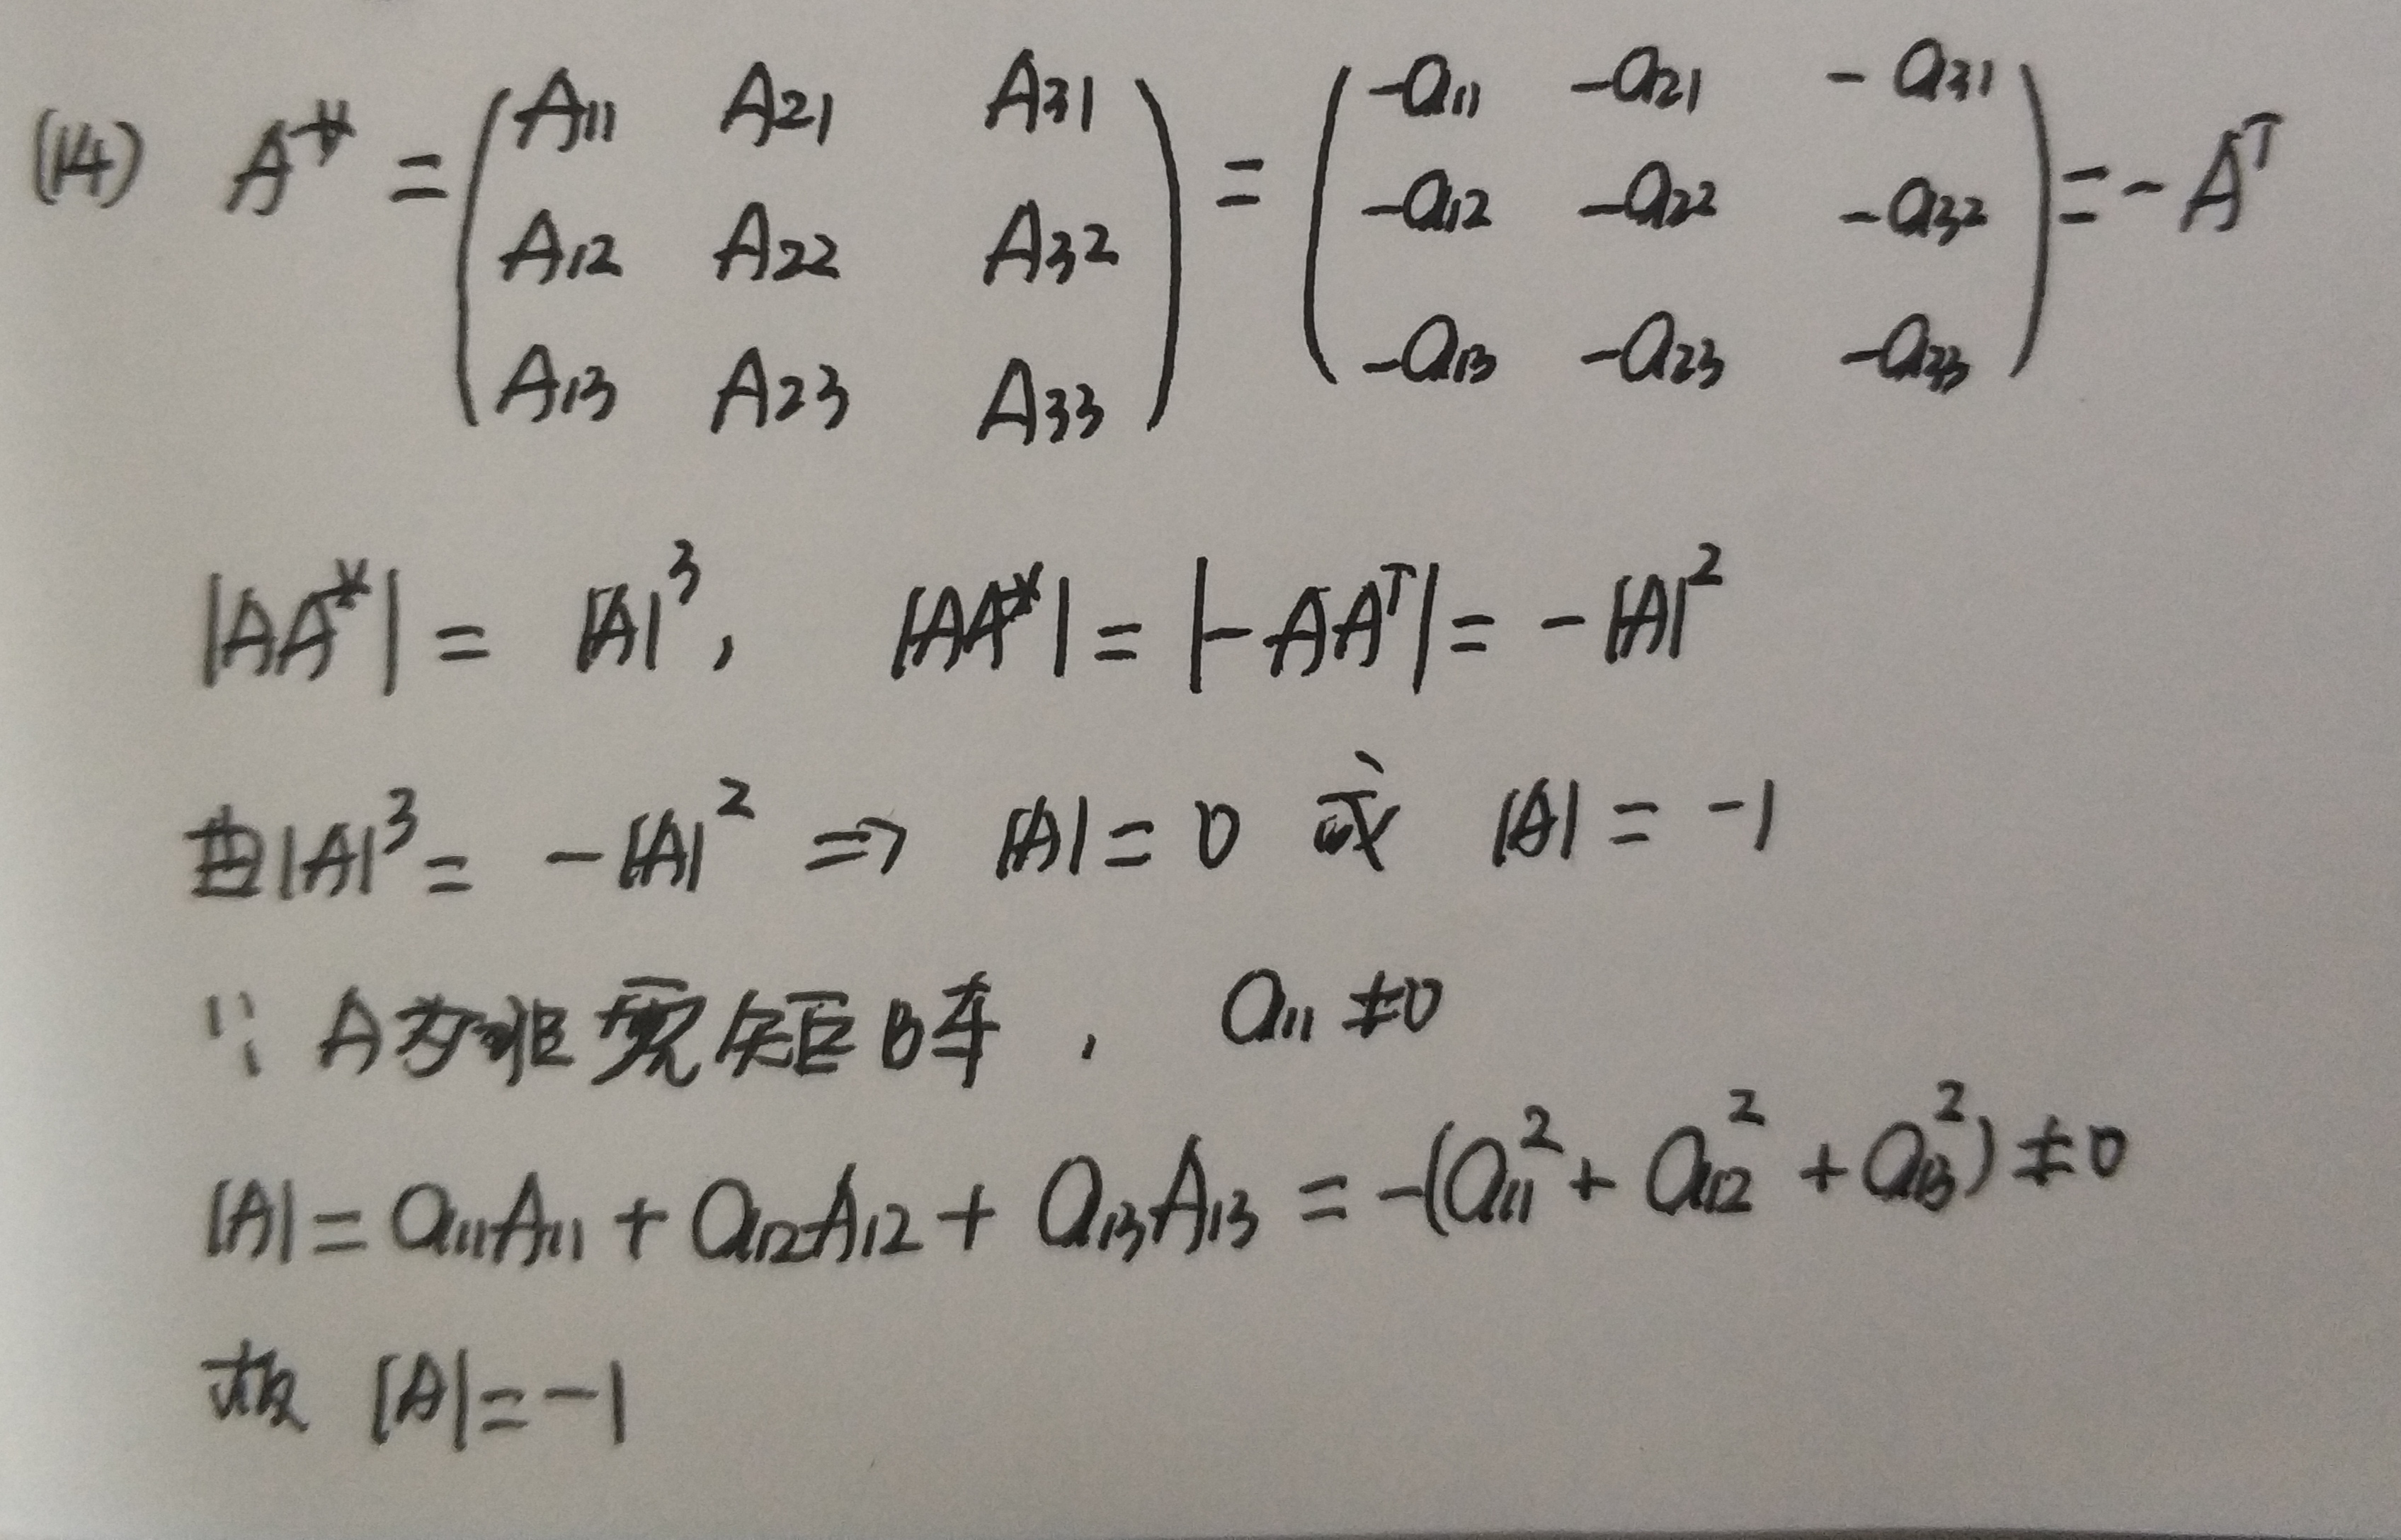 (14) A* = (A11 A21 A31 A12 A22 A32 A13 A23 A33) = (-a11 -a21 -a31 -a12 -a22 -a32 -a13 -a23 -a33) = -A^T
|AA*| = |A|^3, |AA*| = |-AA^T| = -|A|^2
由|A|^3 = -|A|^2 => |A| = 0 或 |A| = -1
∵ A为非零矩阵, a11 ≠0
|A| = a11A11 + a12A12 + a13A13 = -(a11^2 + a12^2 + a13^2) ≠0
故 |A| = -1